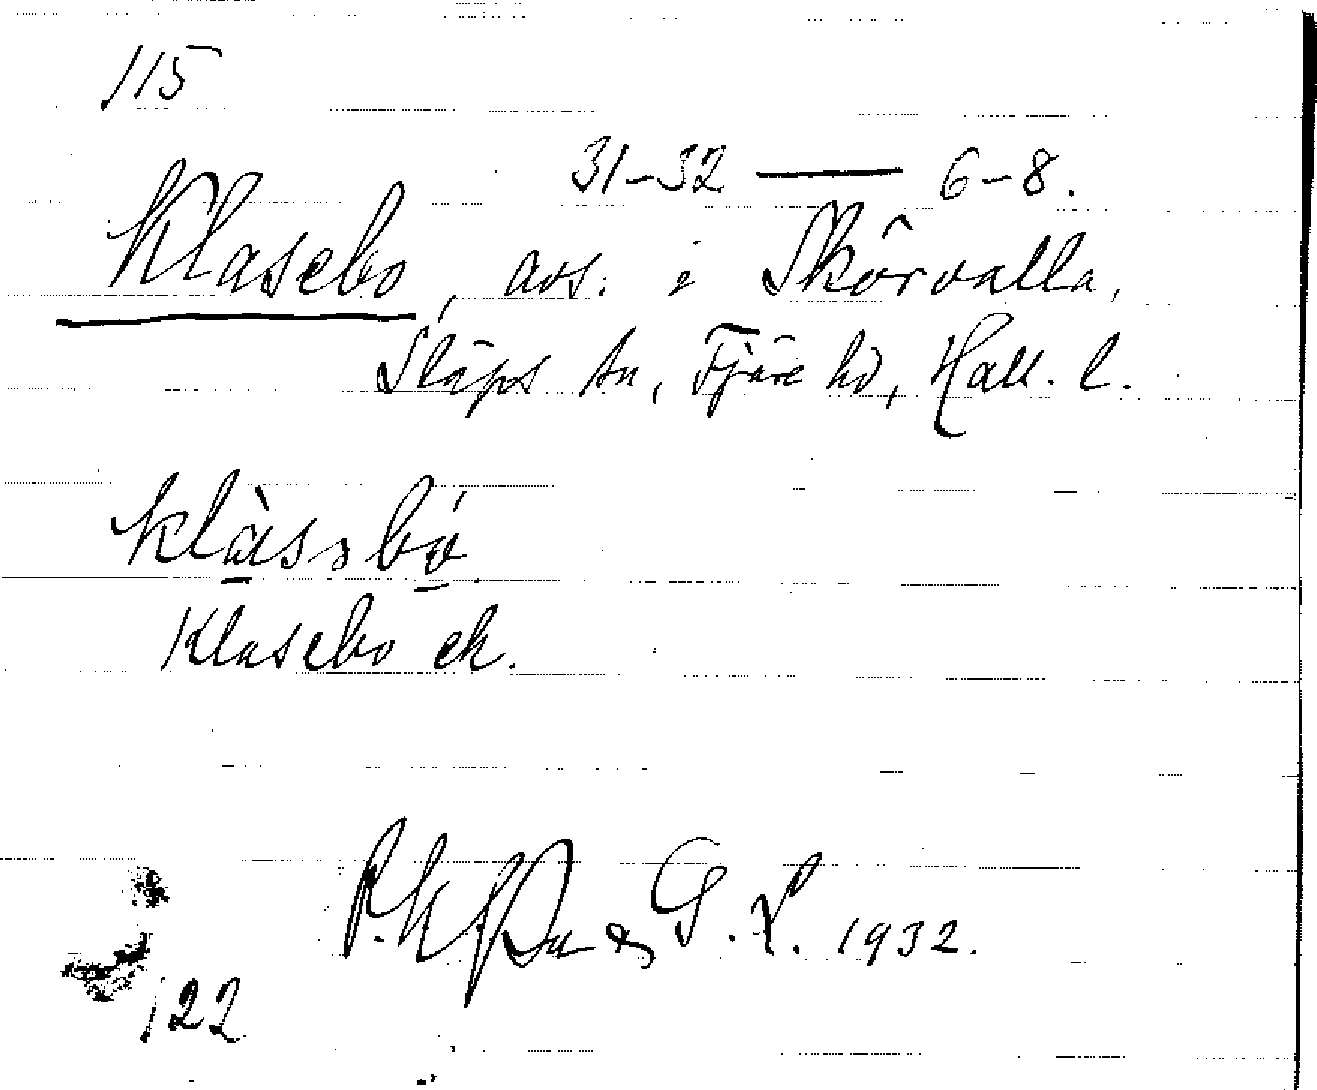 115
31-32 — 6-8.
Klasebo, avs. i Skårvalla,
Släps sn, Fjäre hd, Hall. l.
klàssbó
Klasebo ek.
G. L. 1932.
122